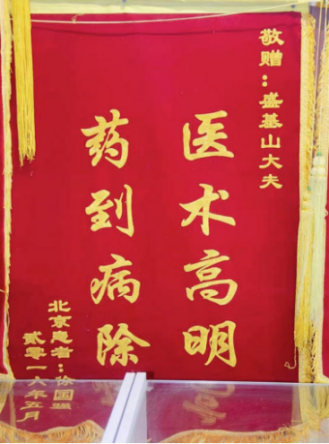 敬赠：盛基山大夫
医术高明
药到病除
北京患者：徐国盟
贰零一六年五月